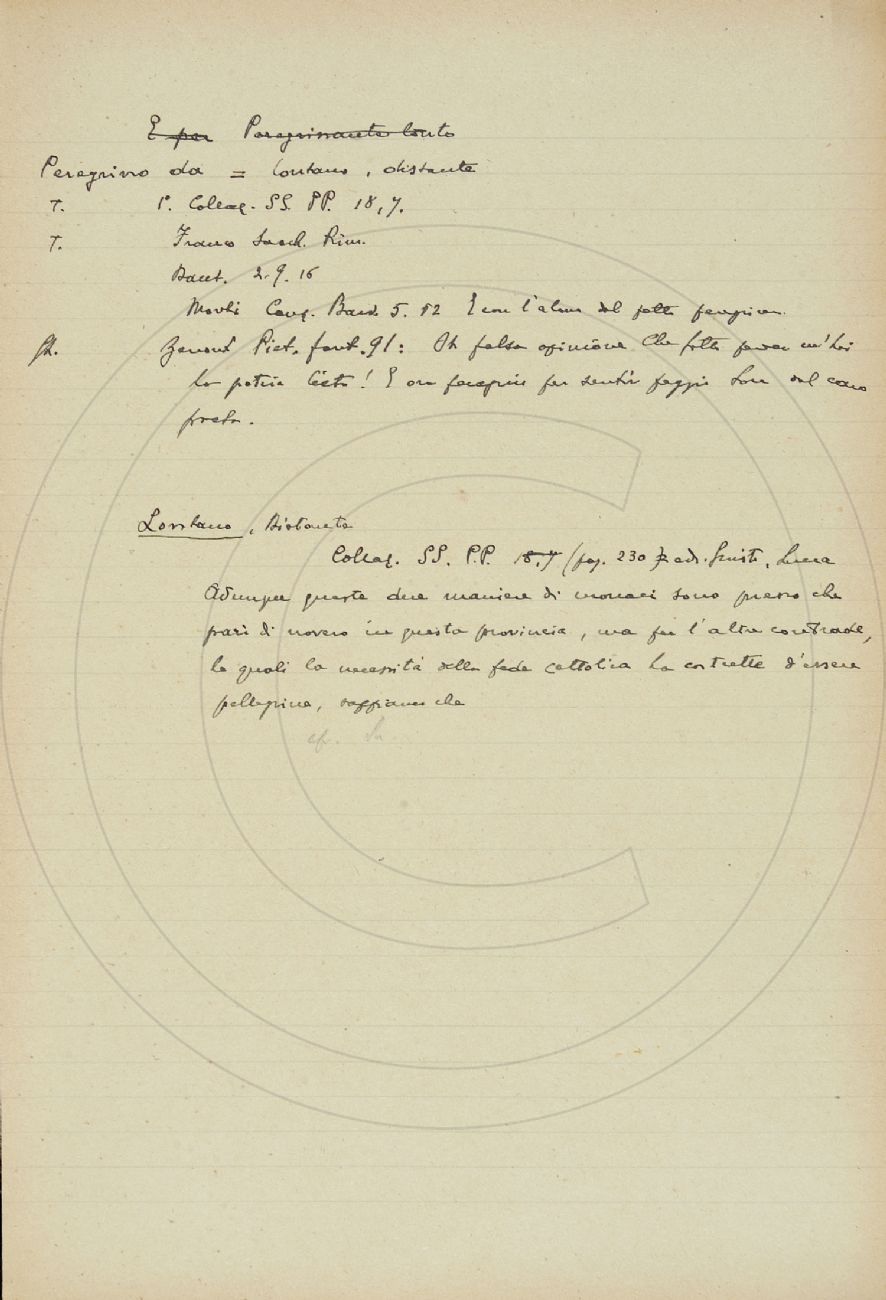 E per Peregrinante lonto
Peregrino da = lontano, distante
T. 1°. Collaz. SS. PP. 18, 7.
T. Franco Sacch. Rim.
Dant. 2. 9. 16
Canz. 5. 12 E con l'alma dal petto
St. Zenoni Piet. font. 91: Oh falsa opinione che fatto m'hai
la patria lieta! E per sentir dal caro
Lontano, Distante
Collaz. SS. P.P. 18, 7 (pag. 230 ed. Giusti, Lucca
Adunque queste due maniere di monaci sono presso che
pari di novero in questa provincia, ma per l'altre contrade,
le quali la necessità della fede cattolica ha costrette d'essere
pellegrine, sappiamo che
cf.